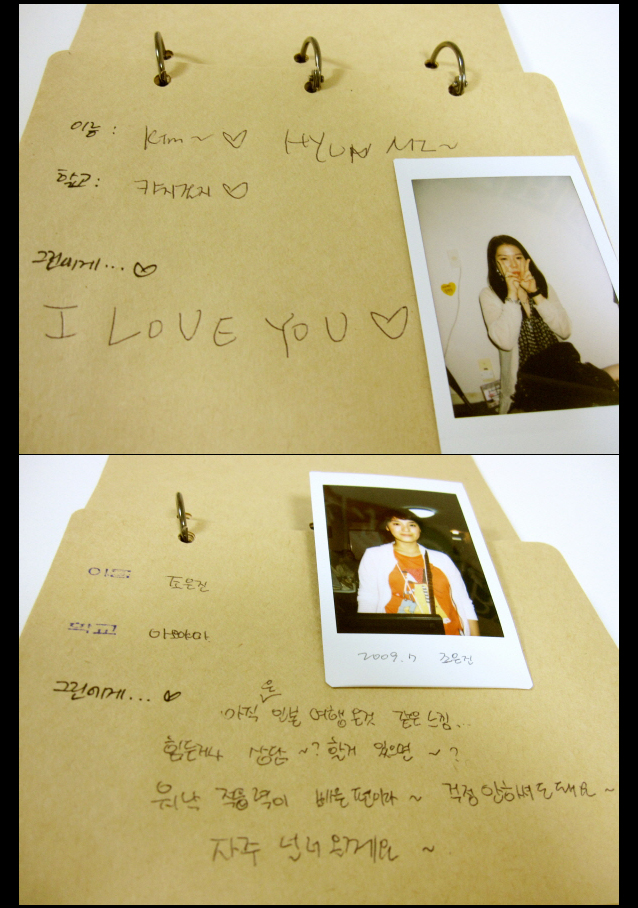 이름 : Kim ~ ♡ HYUN MI ~
학교 : 캬지켄지 ♡
그린이에게... ♡
I LOVE YOU ♡
이름 조은진
학교 아야마
2009.7 조은진
그린이에게... ♡
은
아직 일본 여행온것 같은 느낌...
힘든거나 상담 ~? 할거 있으면 ~ ?
워낙 적응력이 빠른편이라 ~ 걱정 안하셔도 돼요 ~
자주 놀러올게요 ~